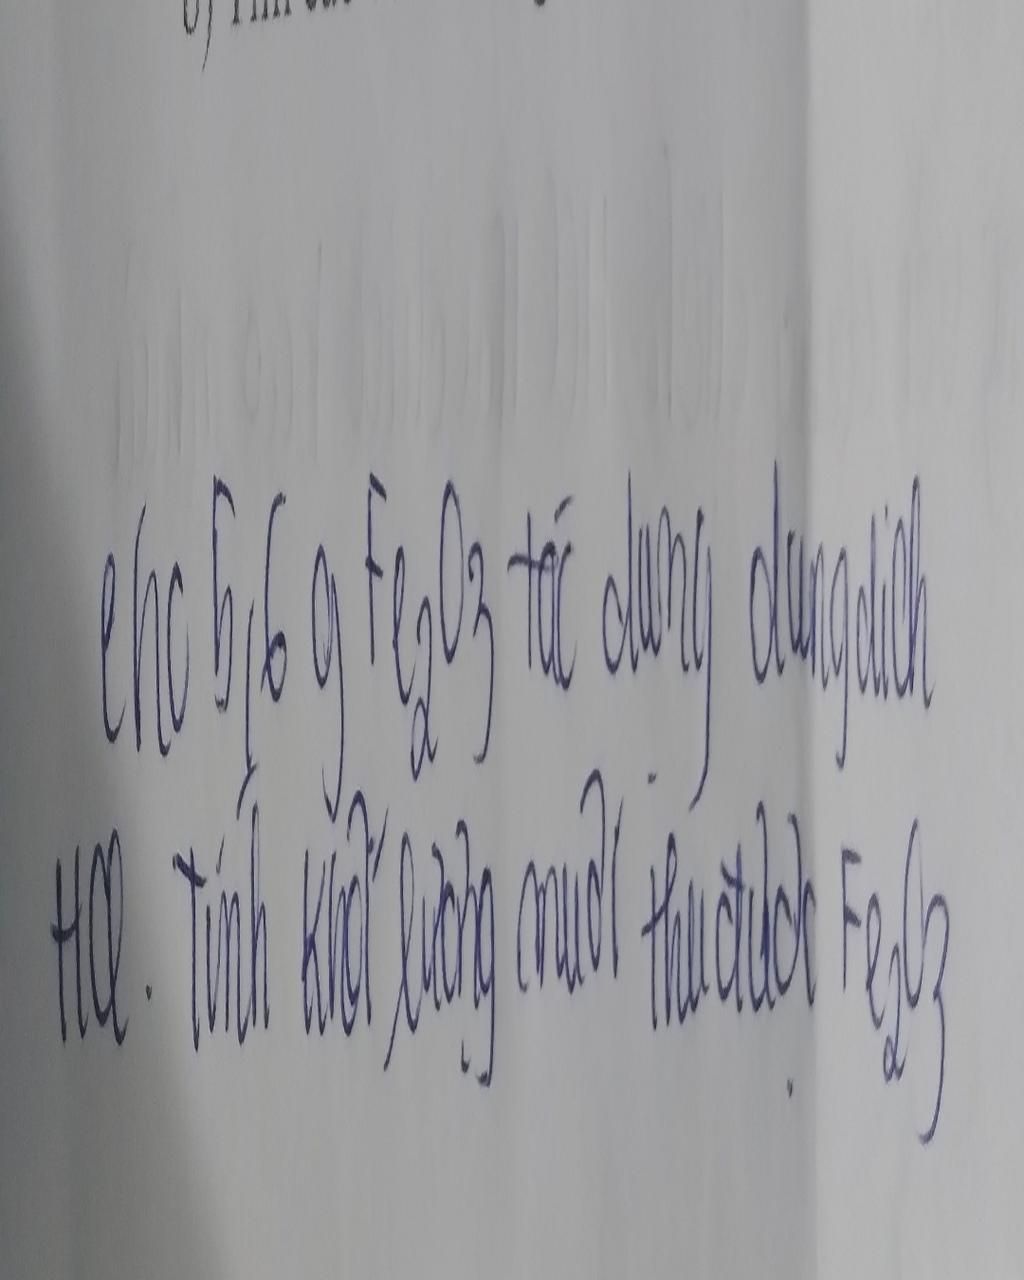 cho 5,6 g Fe₂O₃ tác dụng dung dich
HCl. Tính khối lượng muối thu được Fe₂O₃